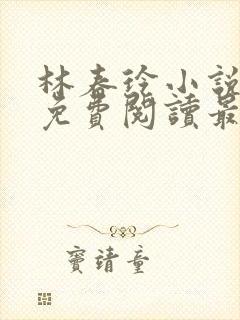 林春徐小說
免費閱讀最
竇靖童